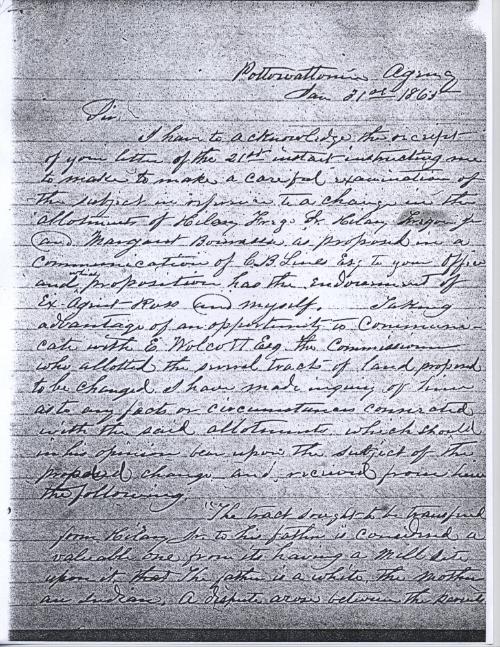 Pottowattomie Agency
Jan 31st 1865
Sir,
I have to acknowledge the receipt
of your letter of the 21st instant instructing me
to make to make a careful examination of
the subject in reference to a change in the
allotments of Hilary Sr. Hilary Jr
and Margaret Bourassa as proposed in a
communication of C.B. Lines Esq to your Office
and which proposition has the endorsement of
Ex Agent Ross and myself Taking
advantage of an opportunity to communi-
cate with E Wolcott Esq the Commissioner
who allotted the several tracts of land proposed
to be changed I have made inquiry of him
as to any facts or circumstances connected
with the said allotments which should
in his opinion bear upon the subject of the
proposed change and received from him
the following,
"The tract sought to be transfered
from Hilary Jr. to his father is considered a
valuable one from its having a Mill Site
upon it, that the father is a white, the mother
an Indian, A dispute arose between the parents